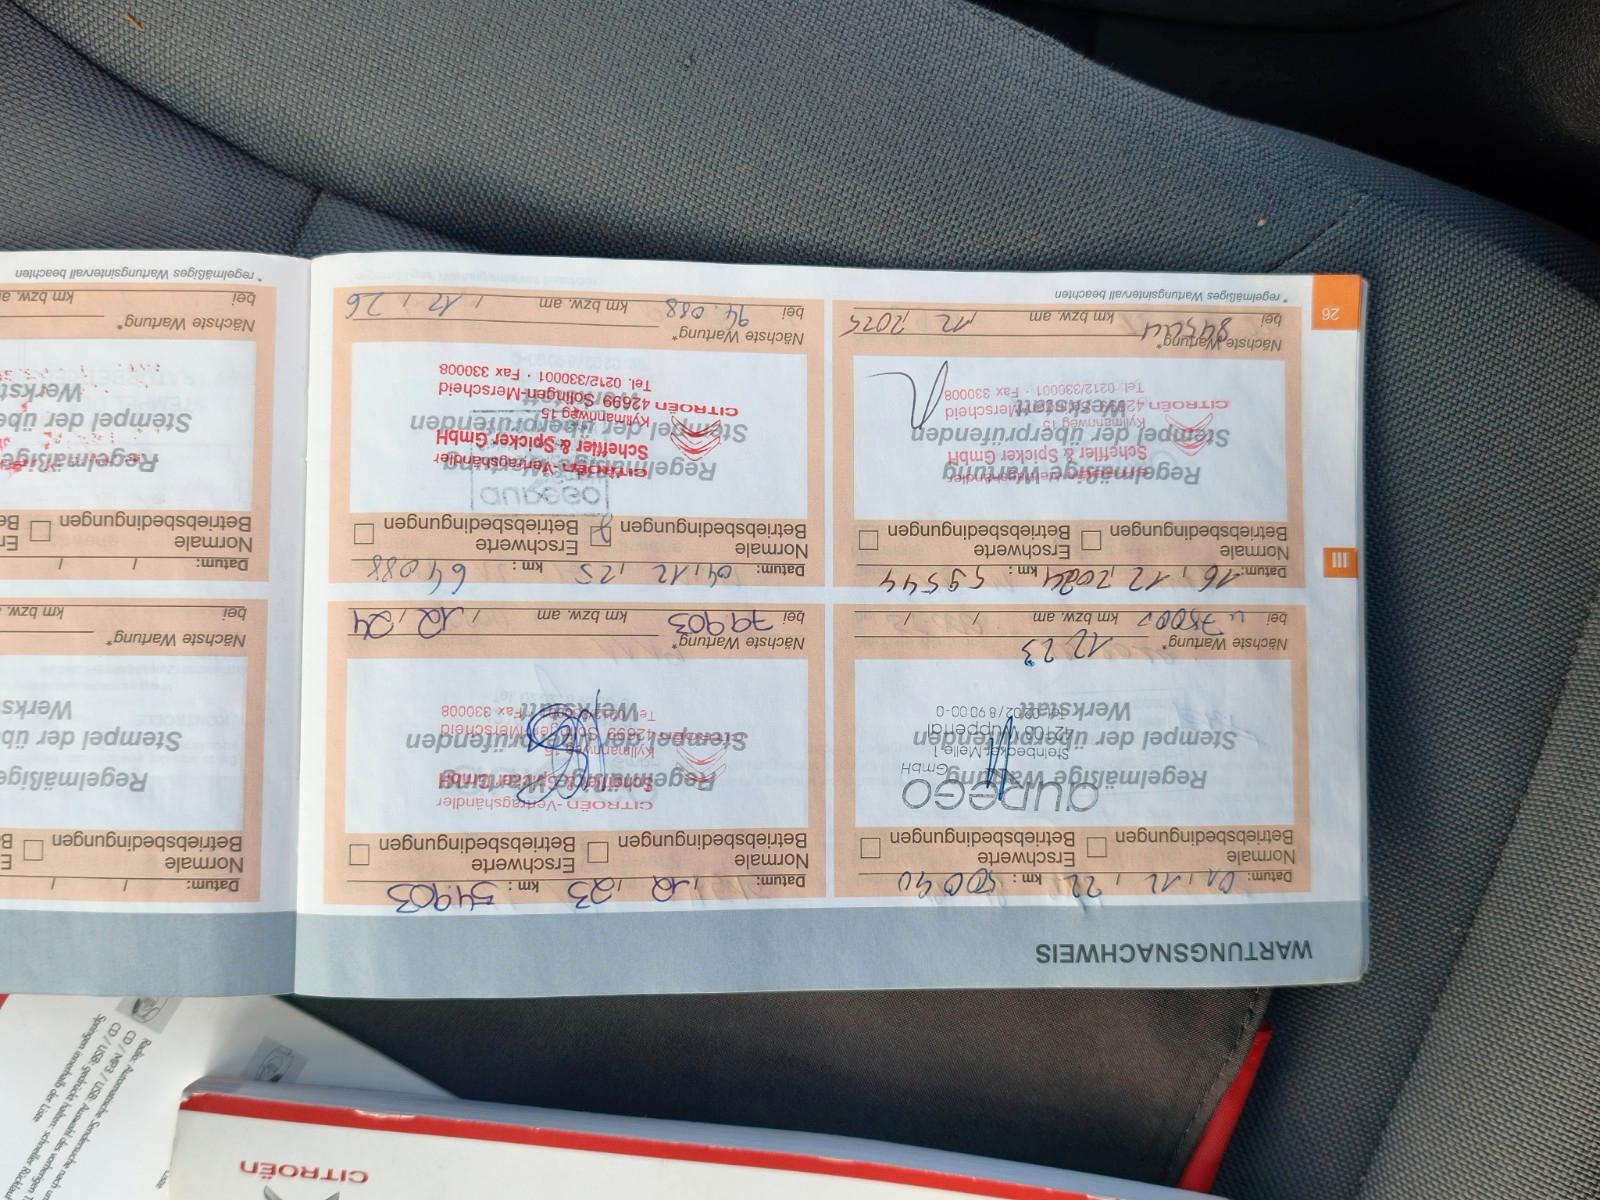 WARTUNGSNACHWEIS
Datum: 01 / 12 / 22 km : 50040
Normale Betriebsbedingungen
Erschwerte Betriebsbedingungen
Regelmäßige Wartung
Stempel der überprüfenden
Werkstatt
aurego
GmbH
Steinbecker Meile 1
42103 Wuppertal
Nächste Wartung*
12 23
bei 75000 km bzw. am / /
Datum: 12 / 23 km : 54903
Normale Betriebsbedingungen
Erschwerte Betriebsbedingungen
Regelmäßige Wartung
Stempel der überprüfenden
Werkstatt
CITROËN-Vertragshändler
Scheffler & Spicker GmbH
Kyllmannweg 15
42699 Solingen-Merscheid
Fax 330008
CITROËN
Nächste Wartung*
bei 79903 km bzw. am / 12 / 24
Datum: 16 / 12 / 2024 km : 59544
Normale Betriebsbedingungen
Erschwerte Betriebsbedingungen
Regelmäßige Wartung
Stempel der überprüfenden
Werkstatt
Scheffler & Spicker GmbH
Kyllmannweg 15
42699 Solingen-Merscheid
Tel. 0212/330001 · Fax 330008
CITROËN
Nächste Wartung*
bei km bzw. am 12 2025
* regelmäßiges Wartungsintervall beachten
Datum: 04 / 12 / 25 km : 64088
Normale Betriebsbedingungen
Erschwerte Betriebsbedingungen
aurego
Regelmäßige Wartung
Stempel der überprüfenden
Werkstatt
CITROËN-Vertragshändler
Scheffler & Spicker GmbH
Kyllmannweg 15
42699 Solingen-Merscheid
Tel. 0212/330001 · Fax 330008
CITROËN
Nächste Wartung*
bei 94.088 km bzw. am / 12 / 26
III
26
Datum: / /
Normale Betriebsbedingungen
Regelmäßige
Stempel der üb
Werks
Nächste Wartung*
bei km bzw. a
Datum: / /
Normale Betriebsbedingungen
Regelmäßige
Stempel der über
Werkst
Nächste Wartung*
bei km bzw. a
* regelmäßiges Wartungsintervall beachten
CITROËN
Radio: Automatische Sendersuche nach un
CD / MP3 / USB: Auswahl des vorherigen T
CD / USB: gedrückt halten: schneller Rücklauf
Springen innerhalb der Liste